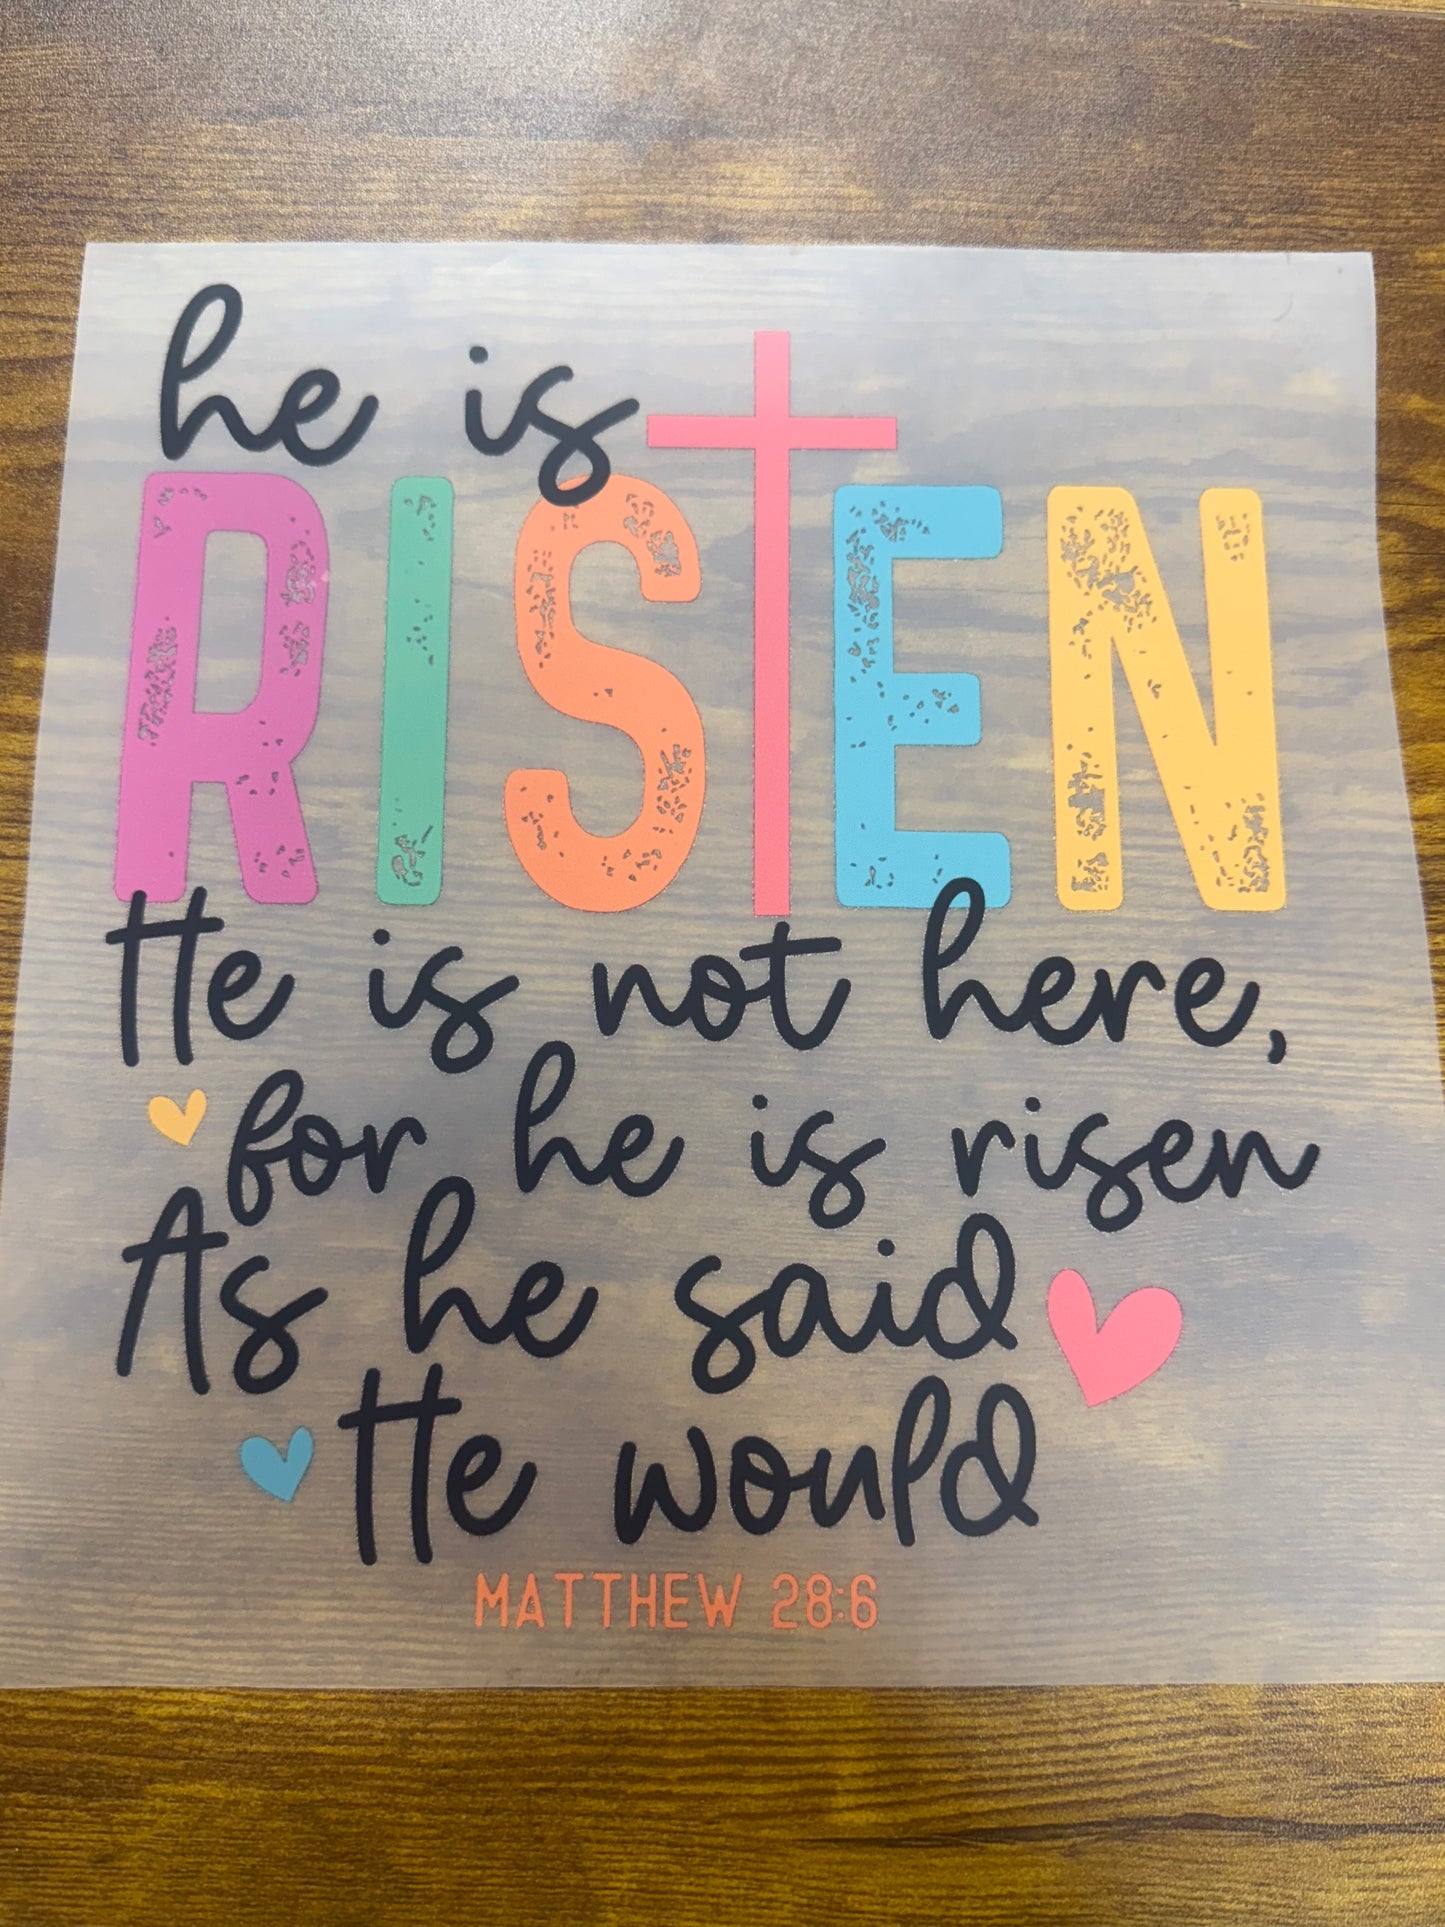 he is
RISEN
He is not here,
for he is risen
As he said
He would
MATTHEW 28:6